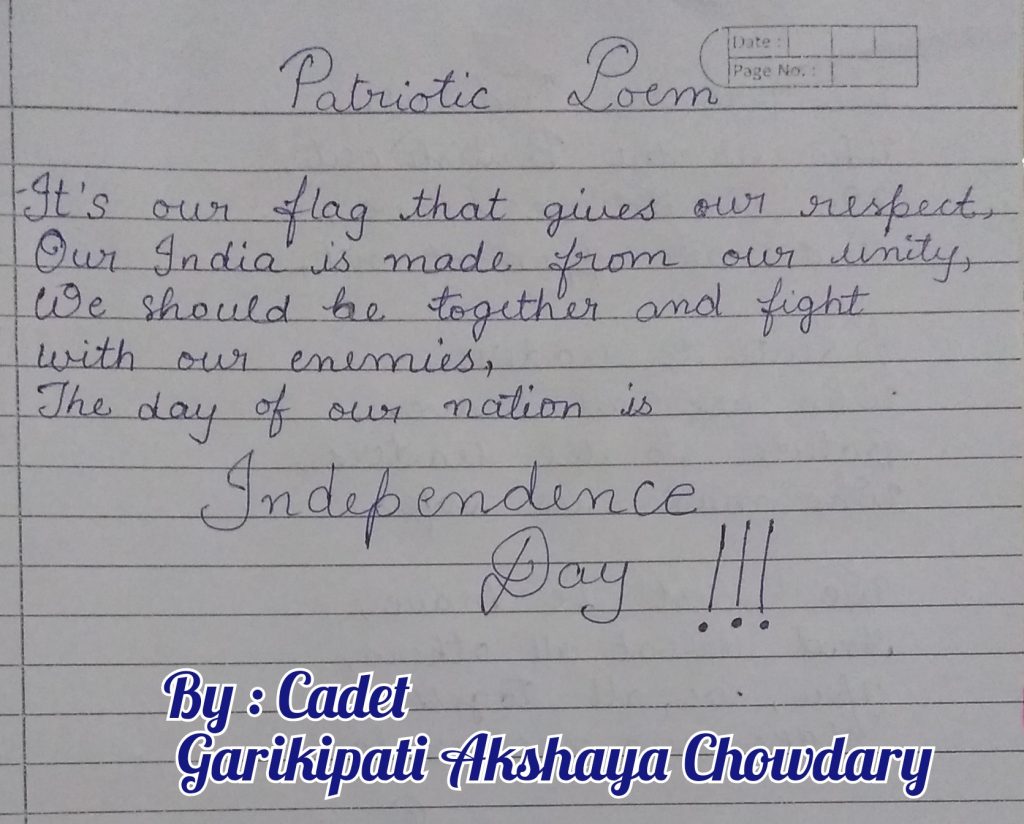 Patriotic Poem
Date :
Page No. :
It's our flag that gives our respect,
Our India is made from our unity,
We should be together and fight
with our enemies,
The day of our nation is
Independence
Day !!!
By : Cadet
Garikipati Akshaya Chowdary